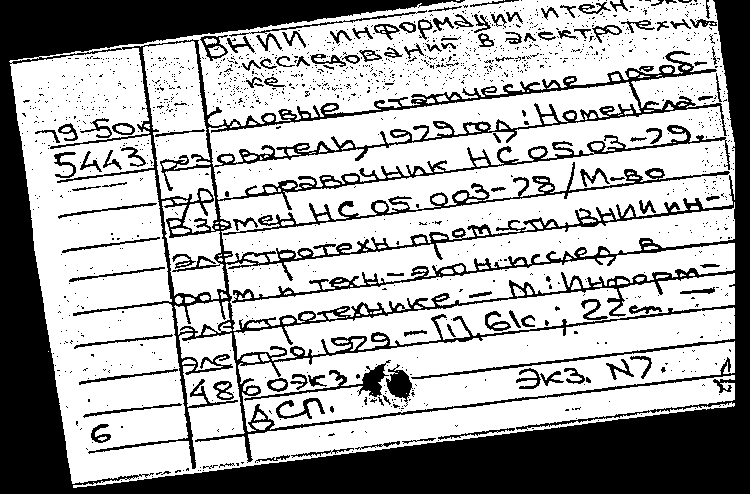 ВНИИ информации и техн. эко
исследований в электротехни-
ке.
Силовые статические преоб-
19-50к
5443 разователи, 1979 год: Номенкла-
тур. справочник НС 05.03-79.
Взамен НС 05.003-78/М-во
электротехн. пром-сти, ВНИИ ин-
форм. и техн.-экон. исслед. в
электротехнике. — М.: Информ-
электро, 1979. — [1], 61с.; 22см. —
4860экз.
ДСП. экз. N7.
6